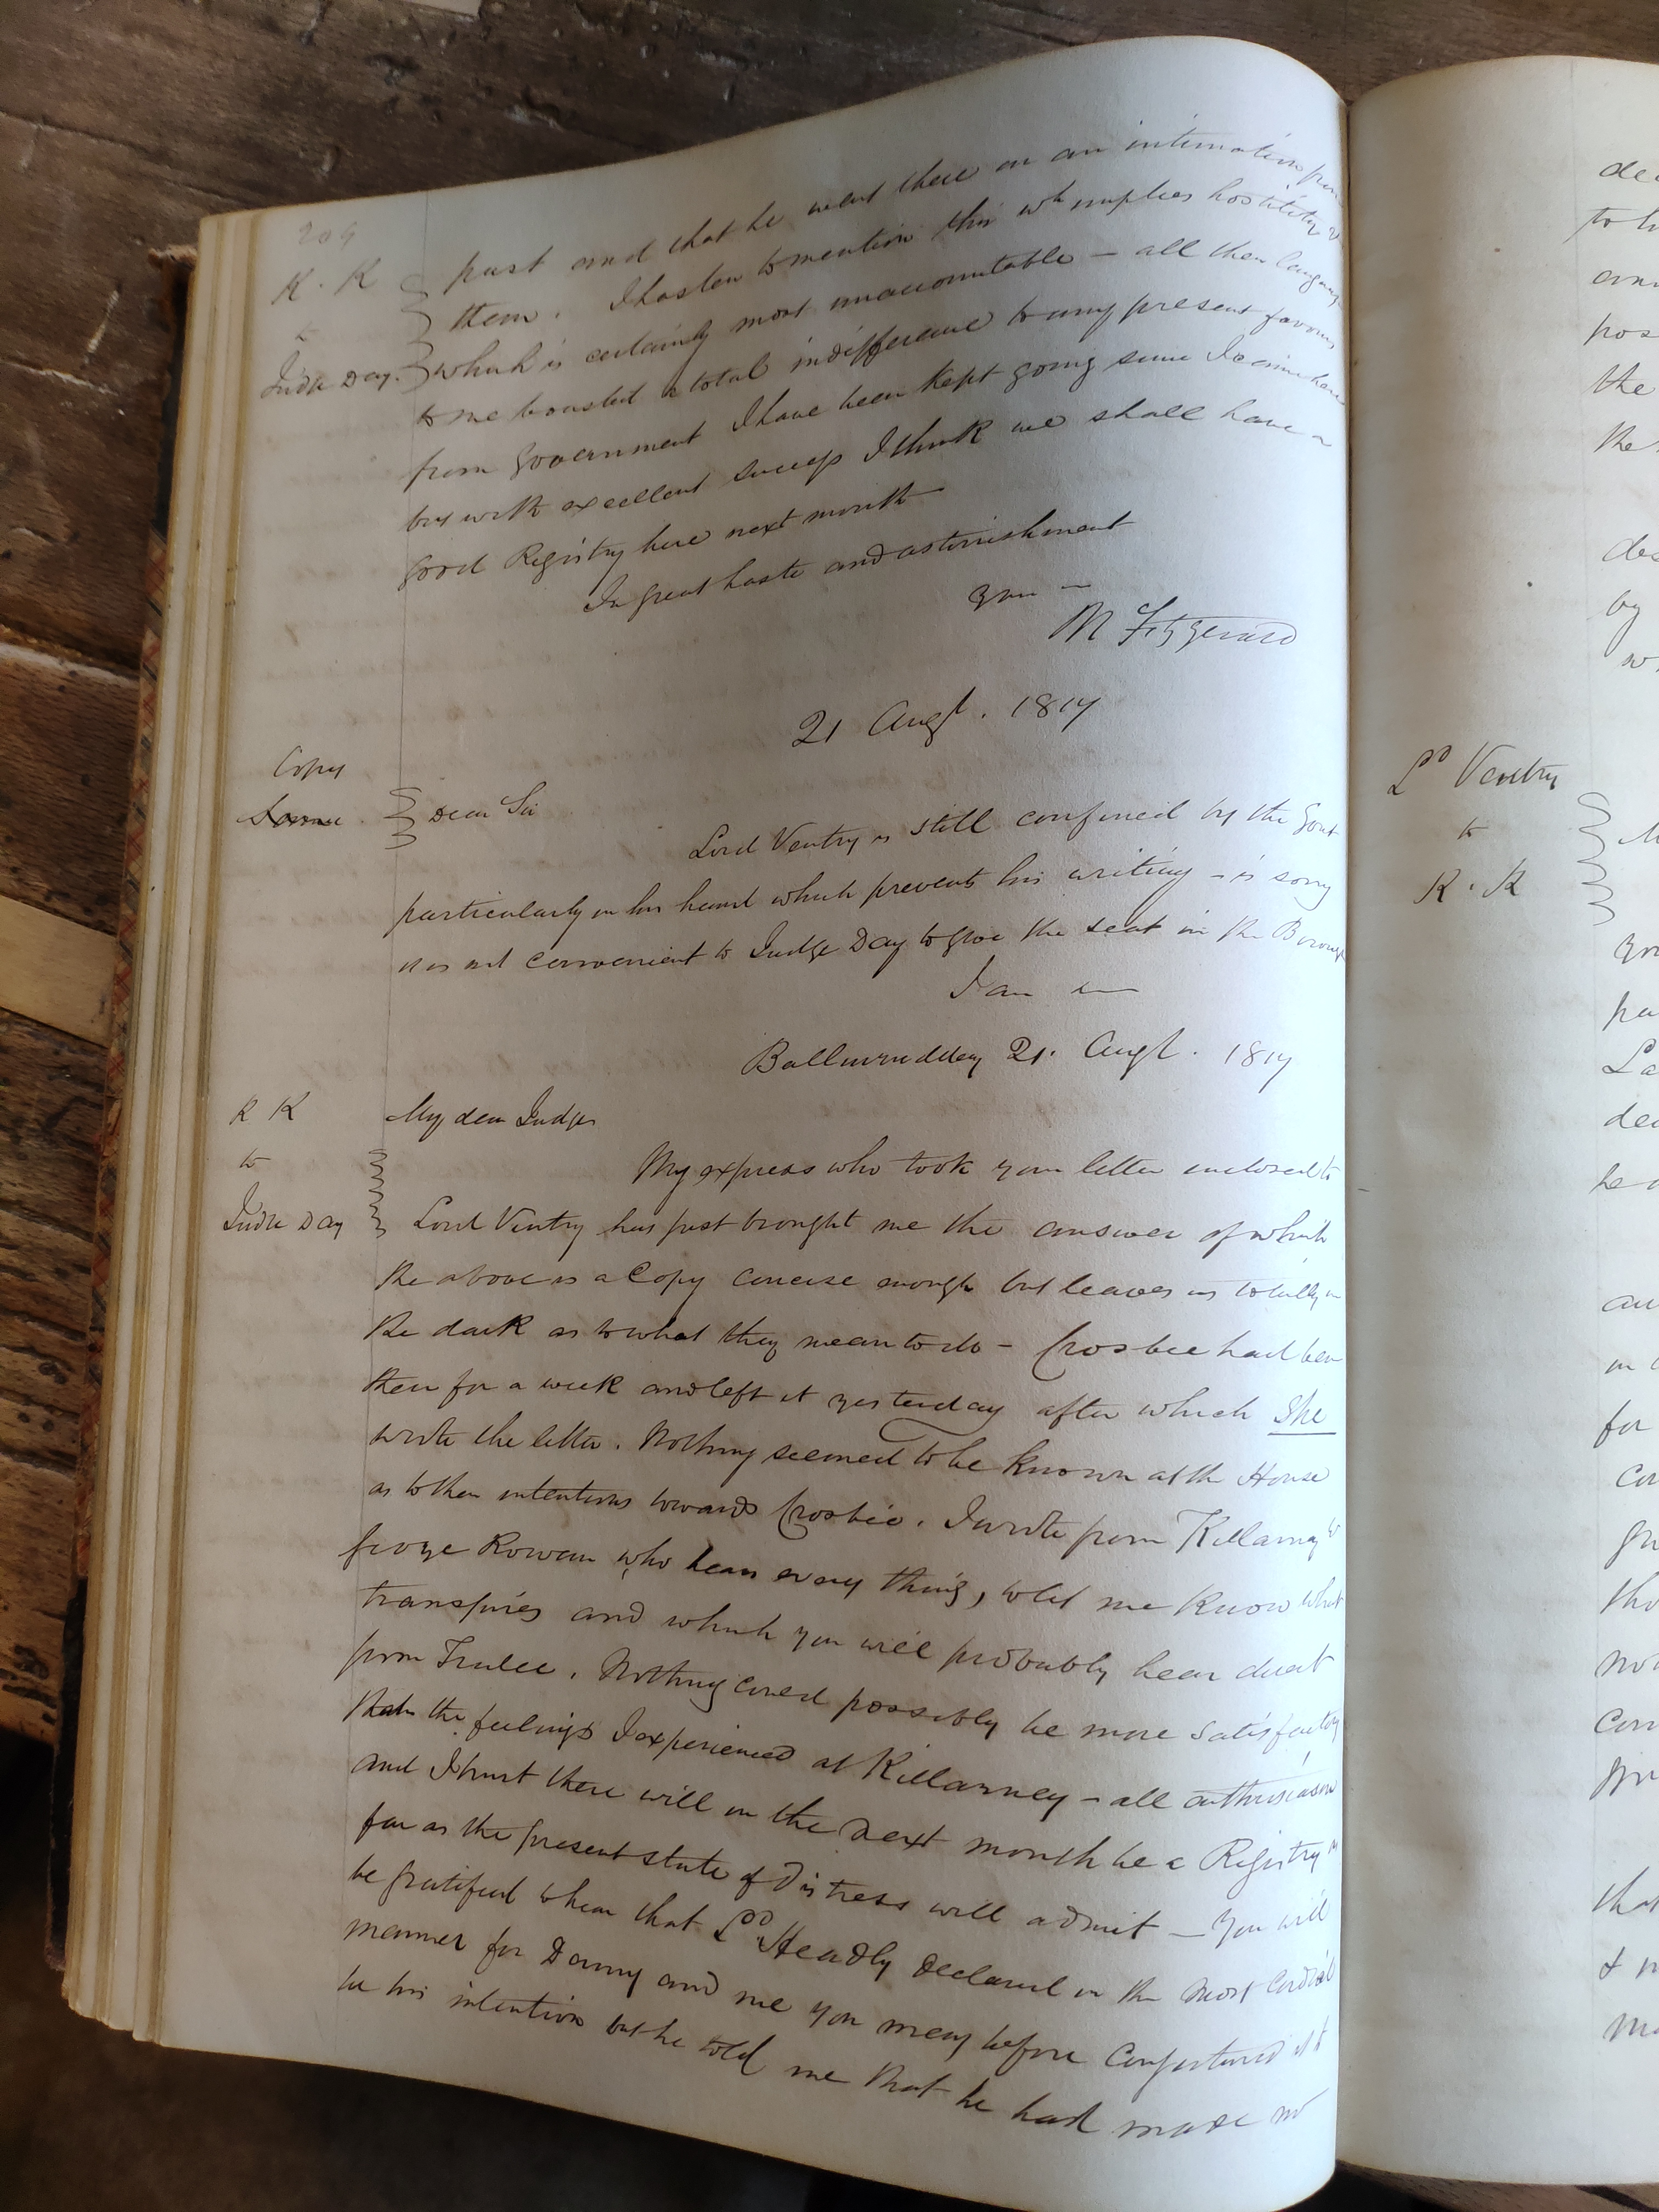 204
K. K
to
Judge Day.
past and that he went there on an intimation from
them. I hasten to mention this wh implies hostility &
which is certainly most unaccountable – all their language
to me boasted a total indifference to any present favours
from Government I have been kept going since I came here
but with excellent success I think we shall have a
good Registry here next month
In great haste and astonishment
your —
M Fitzgerald
21 Augt. 1817
Copy
Dear Sir
Lord Ventry is still confined by the Gout
particularly in his hand which prevents his writing – is sorry
it is not convenient to Judge Day to give the seat in the Borough
I am
21. Augt. 1817
K K
to
Judge Day
My dear Judge
My express who took your letter enclosed to
Lord Ventry has just brought me the answer of which
the above is a Copy concise enough but leaves us totally in
the dark as to what they mean to do – Crosbie had been
there for a week and left it yesterday after which She
wrote the letter. Nothing seemed to be known at the House
as to their intentions towards Crosbie. I wrote from Killarney to
George Rowan who hears every thing, to let me know what
transpires and which you will probably hear direct
from Tralee. Nothing could possibly be more satisfactory
than the feelings I experienced at Killarney – all enthusiasm
and I trust there will in the next month be a Registry as
far as the present state of Distress will admit – You will
be gratified to hear that Ld Headly declared in the most cordial
manner for Denny and me you may before conjectured it to
be his intention but he told me that he had made no
Ld Ventry
to
K. K
to
pos
the
the
by
for